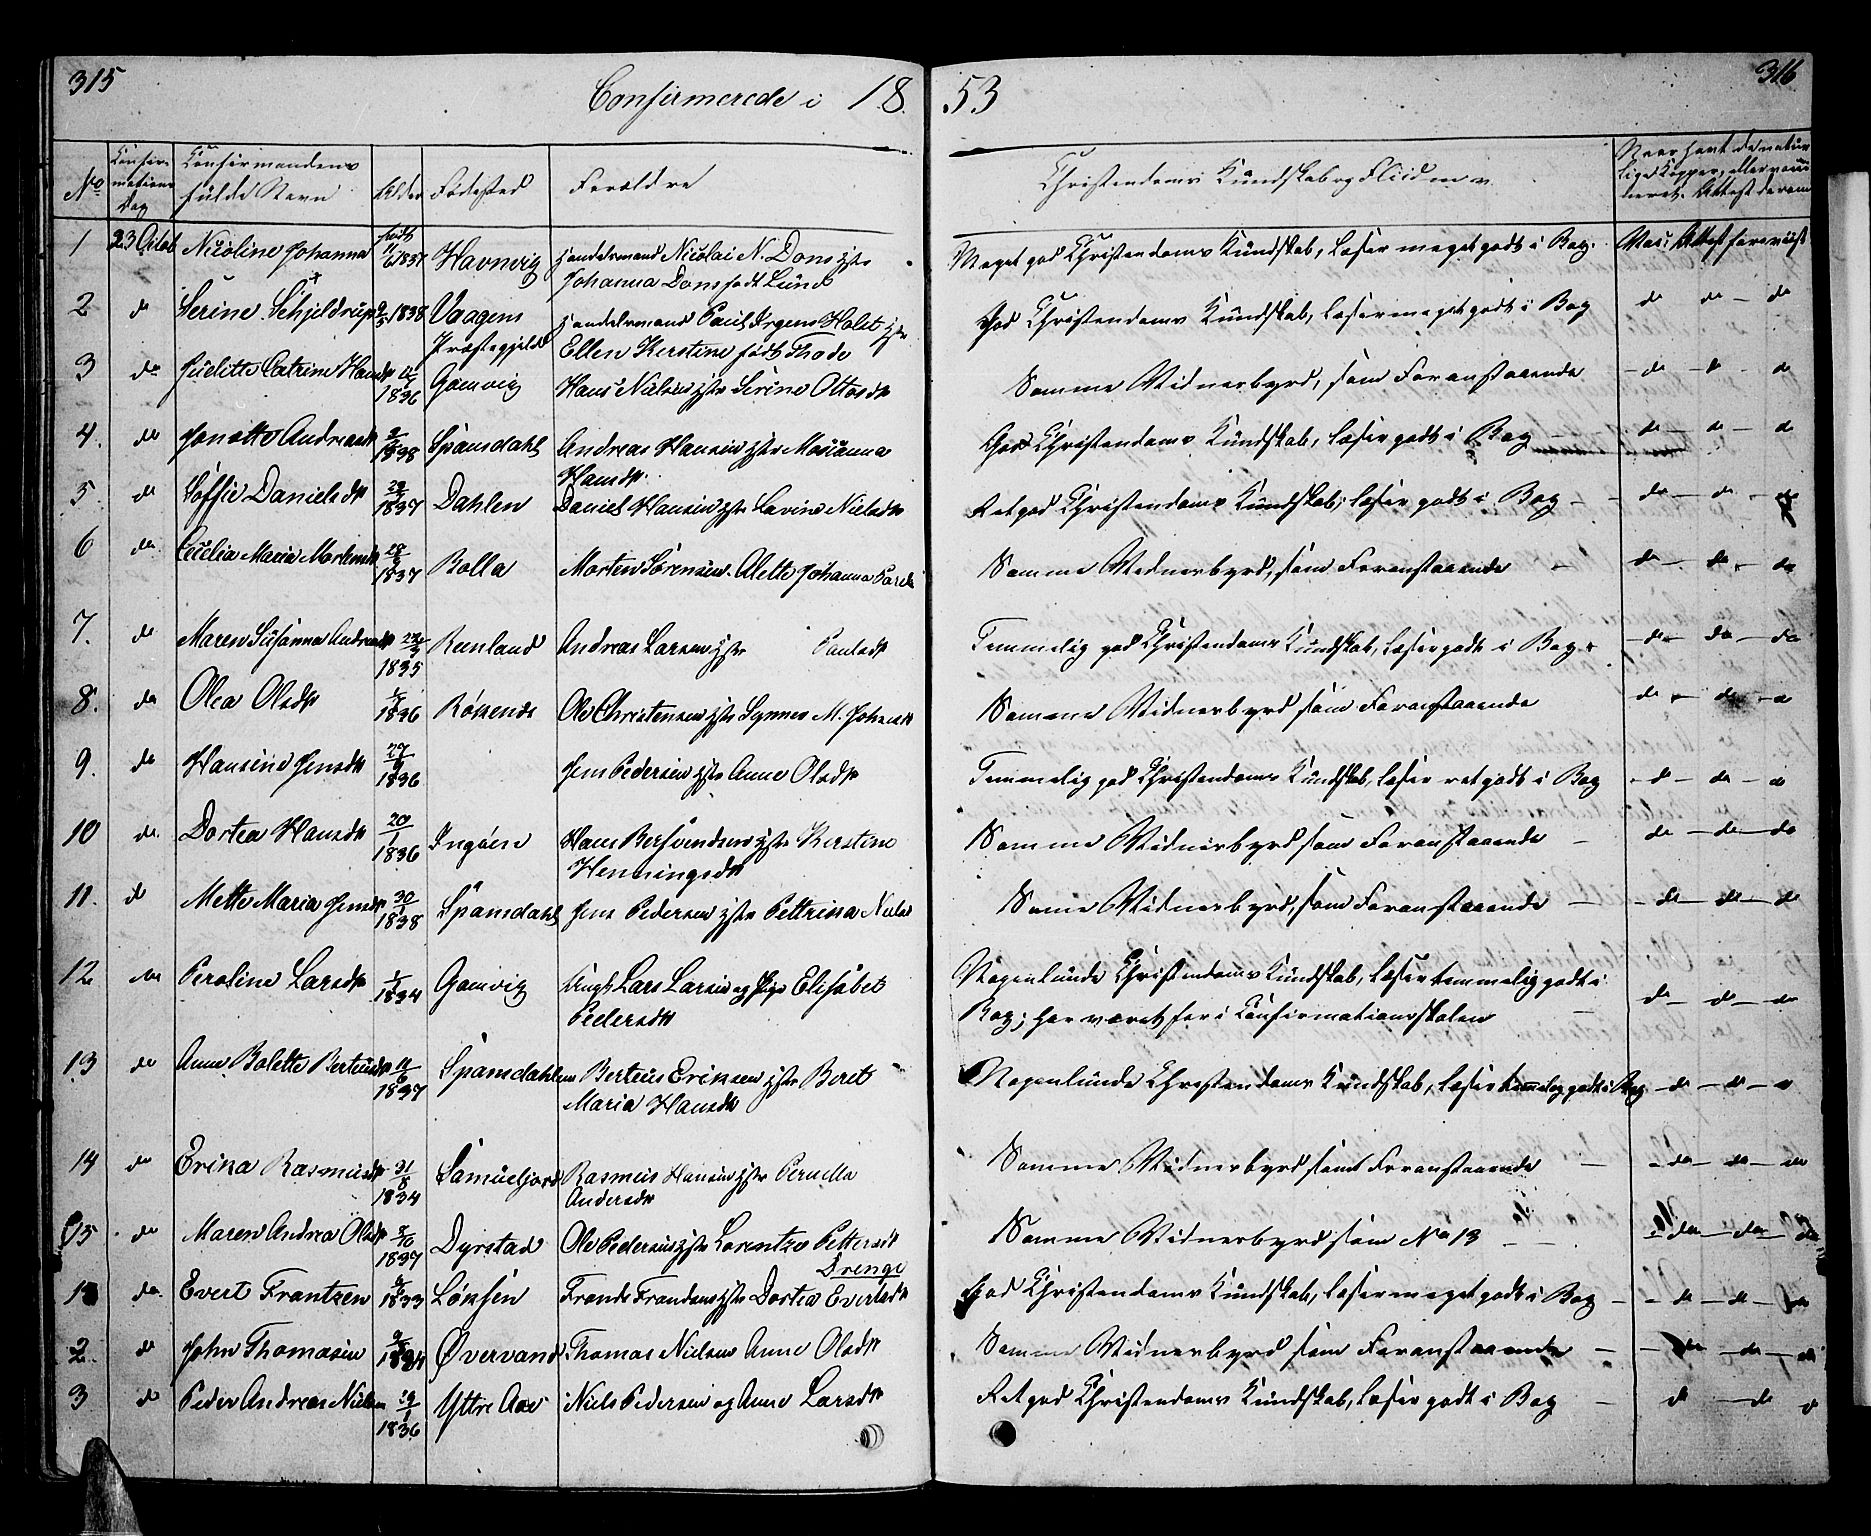 315
Confirmerede i 18
53
316
No
Confir-
mations
Dag
Confirmandens
fulde Navn
Alder
Fødested
Forældre
Christendoms Kundskab og Fliid m. v.
Naar havt de natur
lige Kopper, eller vacci
neret. Attest derom
1 23 Octob Nicoline Johanna født 1837 Havnvig Handelsmand Nicolai N. Dons
Johanna Dons født Lund
Meget god Christendoms Kundskab, læser meget godt i Bog. Vac: Attest foreviist
2 do Serine Schjeldrup 1838 Vaagens
Præstegjeld
Handelsmand Paul Irgens Holst
Ellen Kirstine født Thode
God Christendoms Kundskab, læser meget godt i Bog do do do
3 do Catrine Hansd 1836 Gamvig Hans Nielsen Serine Ottosd
Samme Vidnesbyrd, som Foranstaaende do do do
4. do Jonette Andreasd 1838 Spansdahl Andreas Hansen Marianna
Hansd
God Christendoms Kundskab, læser godt i Bog do do do
5. do Soffie Danielsd 1837 Dahlen Daniel Hansen Lavina Nielsd
Ret god Christendoms Kundskab, læser godt i Bog do do do
6 do Cecelia Maria Mortensd 1837 Rolla Morten Sørensen Alette Johanna
Samme Vidnesbyrd, som Foranstaaende do do do
7. do Maren Susanna Andreasd 1835 Renland Andreas Larsen Paulsd
Temmelig god Christendoms Kundskab, læser godt i Bog do do do
8. do Olea Olsd 1836 Ole Christensen Synnes M. Johnsd
Samme Vidnesbyrd som Foranstaaende do do do
9. do Hansine Jensd 1836 Jens Pedersen Anne Olsd
Temmelig god Christendoms Kundskab, læser ret godt i Bog do do do
10 do Dortea Hansd 20/1 1836 Ingøen Hans Bersvendsen Kirstine
Henningsd
Samme Vidnesbyrd som Foranstaaende do do do
11. do Mette Maria Jensd 30/1 1838 Spansdahl Jens Pedersen Pettrina Niels
Samme Vidnesbyrd, som Foranstaaende do do do
12 do Peroline Larsd 1834 Gamvig Ungk Lars Larsen og Pige Elisabet
Pedersd
Nogenlunde Christendoms Kundskab, læser temmelig godt i
Bog; har været før i Confirmationsskolen do do do
13 do Anne Bolette Berteusd 1837 Spansdahlen Berteus Eriksen Beret
Maria Hansd
Nogenlunde Christendoms Kundskab, læser temmelig godt i Bog do do do
14 do Erika Rasmusd 31/8 1834 Samuelfjord Rasmus Hansen Pernella
Andersd
Samme Vidnesbyrd som Foranstaaende do do do
15 do Maren Andrea Olsd 1837 Dyrstad Ole Pedersen Lorentze Pettersd
Samme Vidnesbyrd som No 13 do do do
Drenge
1 do Evert Frantzen 1833 Løksen Frands Frandsen Dortea Evertsd
God Christendoms Kundskab, læser meget godt i Bog do do do
2. do John Thomasen Øvervand Thomas Nielsen Anne Olsd
Samme Vidnesbyrd som Foranstaaende do do do
3 do Peder Andreas Nielsen 1836 Yttre Aae Niels Pedersen og Anne Larsd
Ret god Christendoms Kundskab, læser godt i Bog do do do